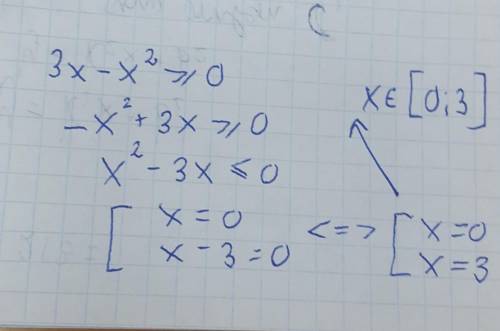 C
3x - x² ⩾ 0
-x² + 3x ⩾ 0
x² - 3x ⩽ 0
[ x = 0
x - 3 = 0
<=> [ x = 0
x = 3
x ∈ [0; 3]